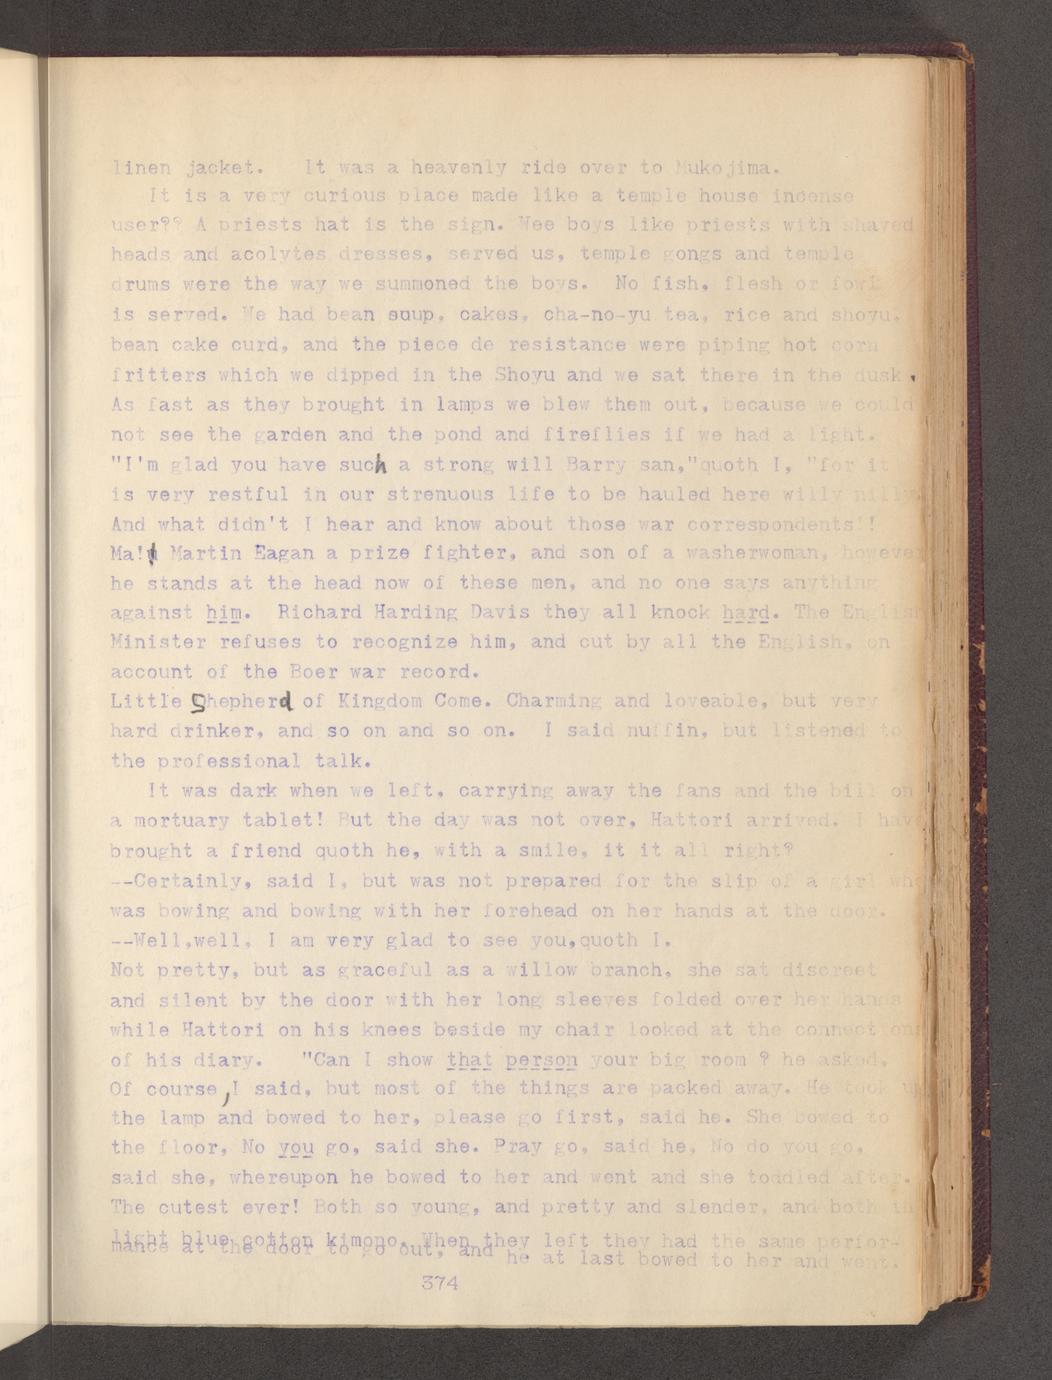 linen jacket.   It was a heavenly ride over to Mukojima.
It is a very curious place made like a temple house incense
user?? A priests hat is the sign. Wee boys like priests with shaved
heads and acolytes dresses, served us, temple gongs and temple
drums were the way we summoned the boys.  No fish, flesh or fowl
is served. We had bean soup, cakes, cha-no-yu tea, rice and shoyu,
bean cake curd, and the piece de resistance were piping hot corn
fritters which we dipped in the Shoyu and we sat there in the dusk,
As fast as they brought in lamps we blew them out, because we could
not see the garden and the pond and fireflies if we had a light.
"I'm glad you have such a strong will Barry san,"quoth I, "for it
is very restful in our strenuous life to be hauled here willy nilly.
And what didn't I hear and know about those war correspondents!!
Ma!! Martin Eagan a prize fighter, and son of a washerwoman, however
he stands at the head now of these men, and no one says anything
against him.  Richard Harding Davis they all knock hard. The English
Minister refuses to recognize him, and cut by all the English, on
account of the Boer war record.
Little Shepherd of Kingdom Come. Charming and loveable, but very
hard drinker, and so on and so on.  I said nuffin, but listened to
the professional talk.
It was dark when we left, carrying away the fans and the bill on
a mortuary tablet! But the day was not over, Hattori arrived. I have
brought a friend quoth he, with a smile, it it all right?
--Certainly, said I, but was not prepared for the slip of a girl who
was bowing and bowing with her forehead on her hands at the door.
--Well,well, I am very glad to see you,quoth I.
Not pretty, but as graceful as a willow branch, she sat discreet
and silent by the door with her long sleeves folded over her hands
while Hattori on his knees beside my chair looked at the connections
of his diary.   "Can I show that person your big room ? he asked,
Of course,I said, but most of the things are packed away. He took
the lamp and bowed to her, please go first, said he. She bowed to
the floor, No you go, said she. Pray go, said he, No do you go,
said she, whereupon he bowed to her and went and she toddled after.
The cutest ever! Both so young, and pretty and slender, and both in
light blue cotton kimono. When they left they had the same perfor-
mance at the door to go out, and he at last bowed to her and went.
374